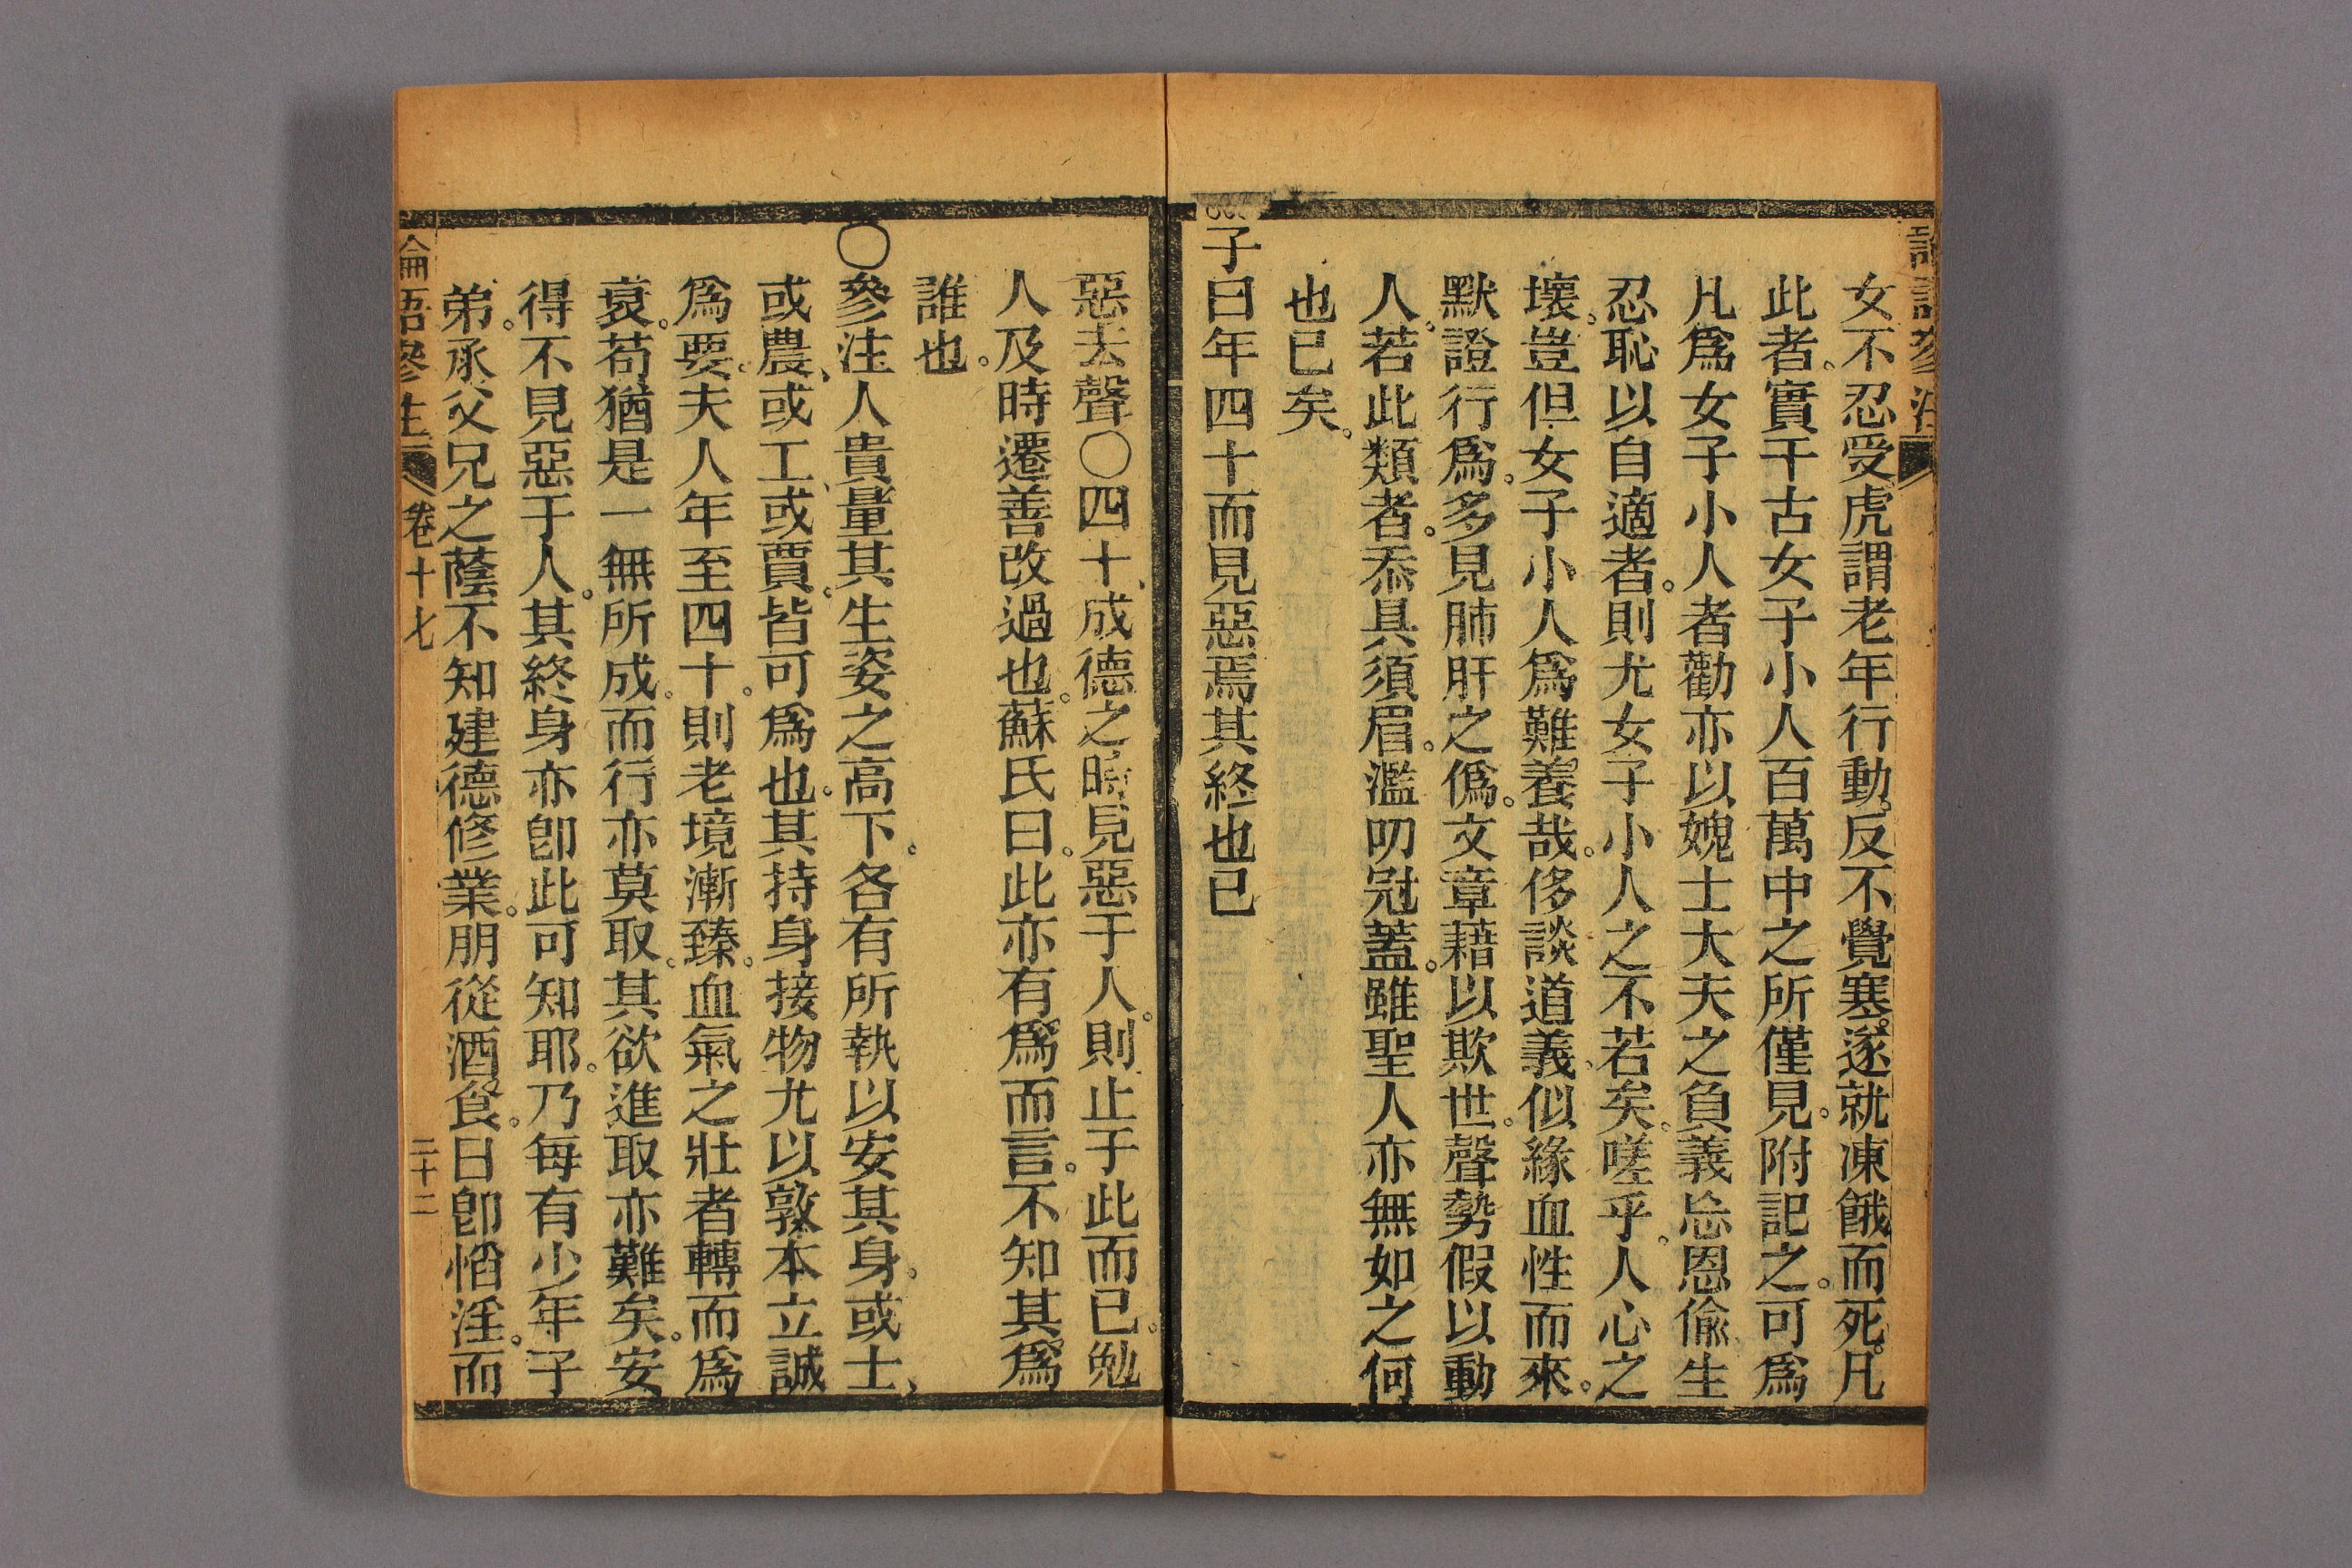 女不忍受虎謂老年行動。反不覺寒。遂就凍餓而死。凡
此者。實千古女子小人百萬中之所僅見。附記之。可爲
凡爲女子小人者勸亦以媿士大夫之負義忘恩偷生
忍恥以自適者。則尤女子小人之不若矣。嗟乎。人心之
壞。豈但女子小人爲難養哉。侈談道義。似緣血性而來。
默證行爲。多見肺肝之僞。文章藉以欺世。聲勢假以動
人。若此類者。忝具須眉。濫叨冠蓋。雖聖人亦無如之何
也已矣。
子曰年四十而見惡焉其終也已
惡去聲○四十、成德之時見惡于人。則止于此而已。勉
人及時遷善改過也。蘇氏曰。此亦有爲而言。不知其爲
誰也。
○參注人貴量其生姿之高下。各有所執以安其身。或士、
或農、或工、或賈。皆可爲也。其持身接物尤以敦本立誠
爲要。夫人年至四十。則老境漸臻。血氣之壯者轉而爲
衰。苟猶是一無所成。而行亦莫取。其欲進取亦難矣。安
得不見惡于人。其終身亦卽此可知耶。乃每有少年子
弟。承父兄之蔭不知建德修業。朋從酒食。日卽慆淫。而
論語參注 卷十七 二十二